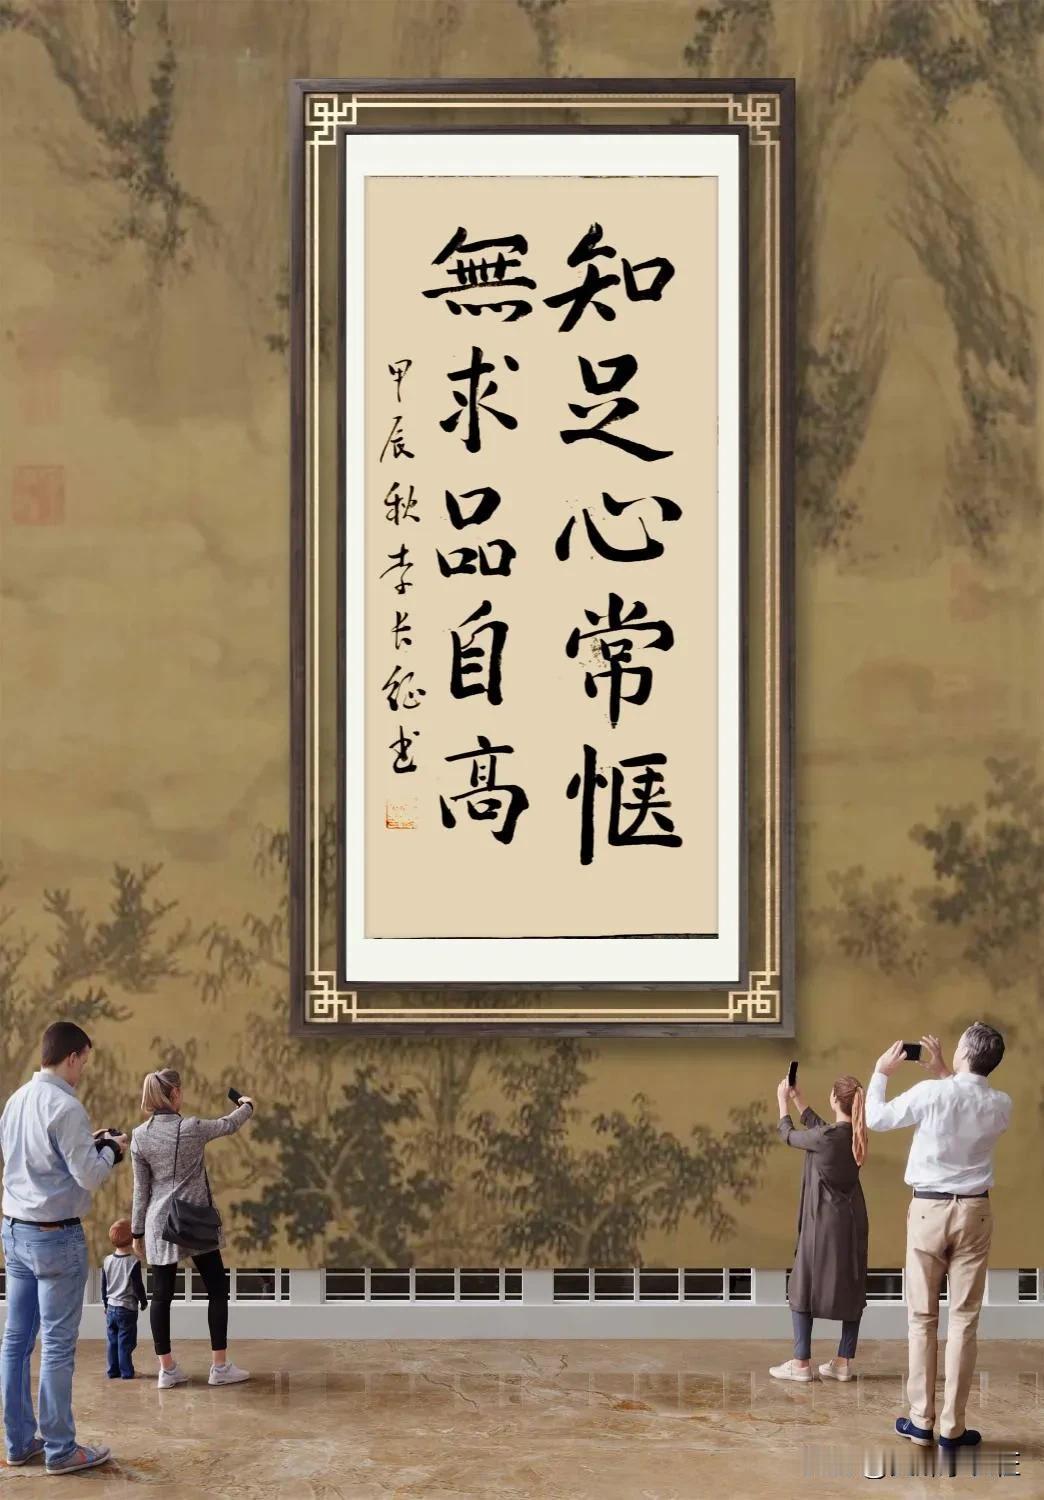 知足心常惬
無求品自高
甲辰秋李长征书